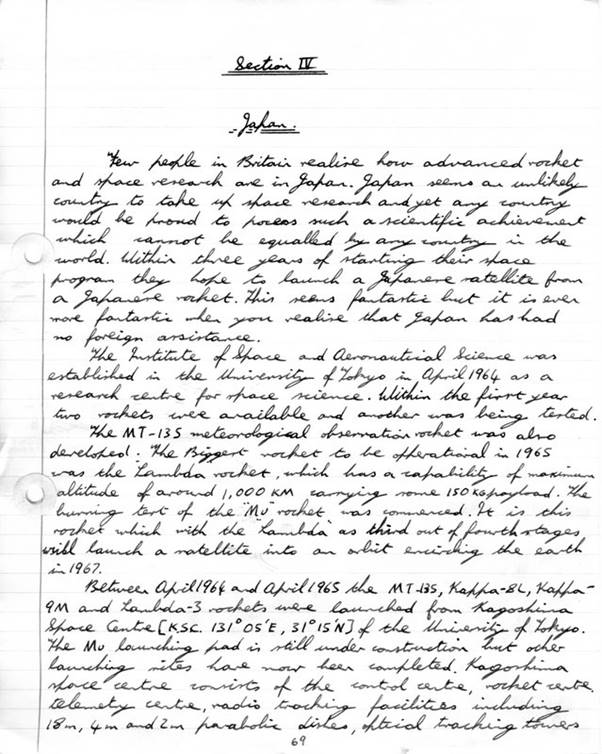 Section IV
Japan.
Few people in Britain realise how advanced rocket
and space research are in Japan. Japan seems an unlikely
country to take up space research and yet any country
would be proud to posess such a scientific achievement
which cannot be equalled by any country in the
world. Within three years of starting their space
program they hope to launch a Japanese satellite from
a Japanese rocket. This seems fantastic but it is even
more fantastic when you realise that Japan has had
no foreign assistance.
The Institute of Space and Aeronautical Science was
established in the University of Tokyo in April 1964 as a
research centre for space science. Within the first year
two rockets were available and another was being tested.
The MT-135 meteorological observation rocket was also
developed. The Biggest rocket to be operational in 1965
was the Lambda rocket, which has a capability of maximum
altitude of around 1,000 KM carrying some 150 KG payload. The
burning test of the "Mu" rocket was commenced. It is this
rocket which with the "Lambda" as third out of fourth stages,
will launch a satellite into an orbit encircling the earth
in 1967.
Between April 1964 and April 1965 the MT-135, Kappa-8L, Kappa-
9M and Lambda-3 rockets were launched from Kagoshima
Space Centre [KSC. 131° 05'E, 31° 15'N] of the University of Tokyo.
The Mu launching pad is still under construction but other
launching sites have now been completed. Kagoshima
space centre consists of the control centre, rocket centre,
telemetry centre, radio tracking facilities including
18m, 4m and 2m parabolic dishes, optical tracking towers
69